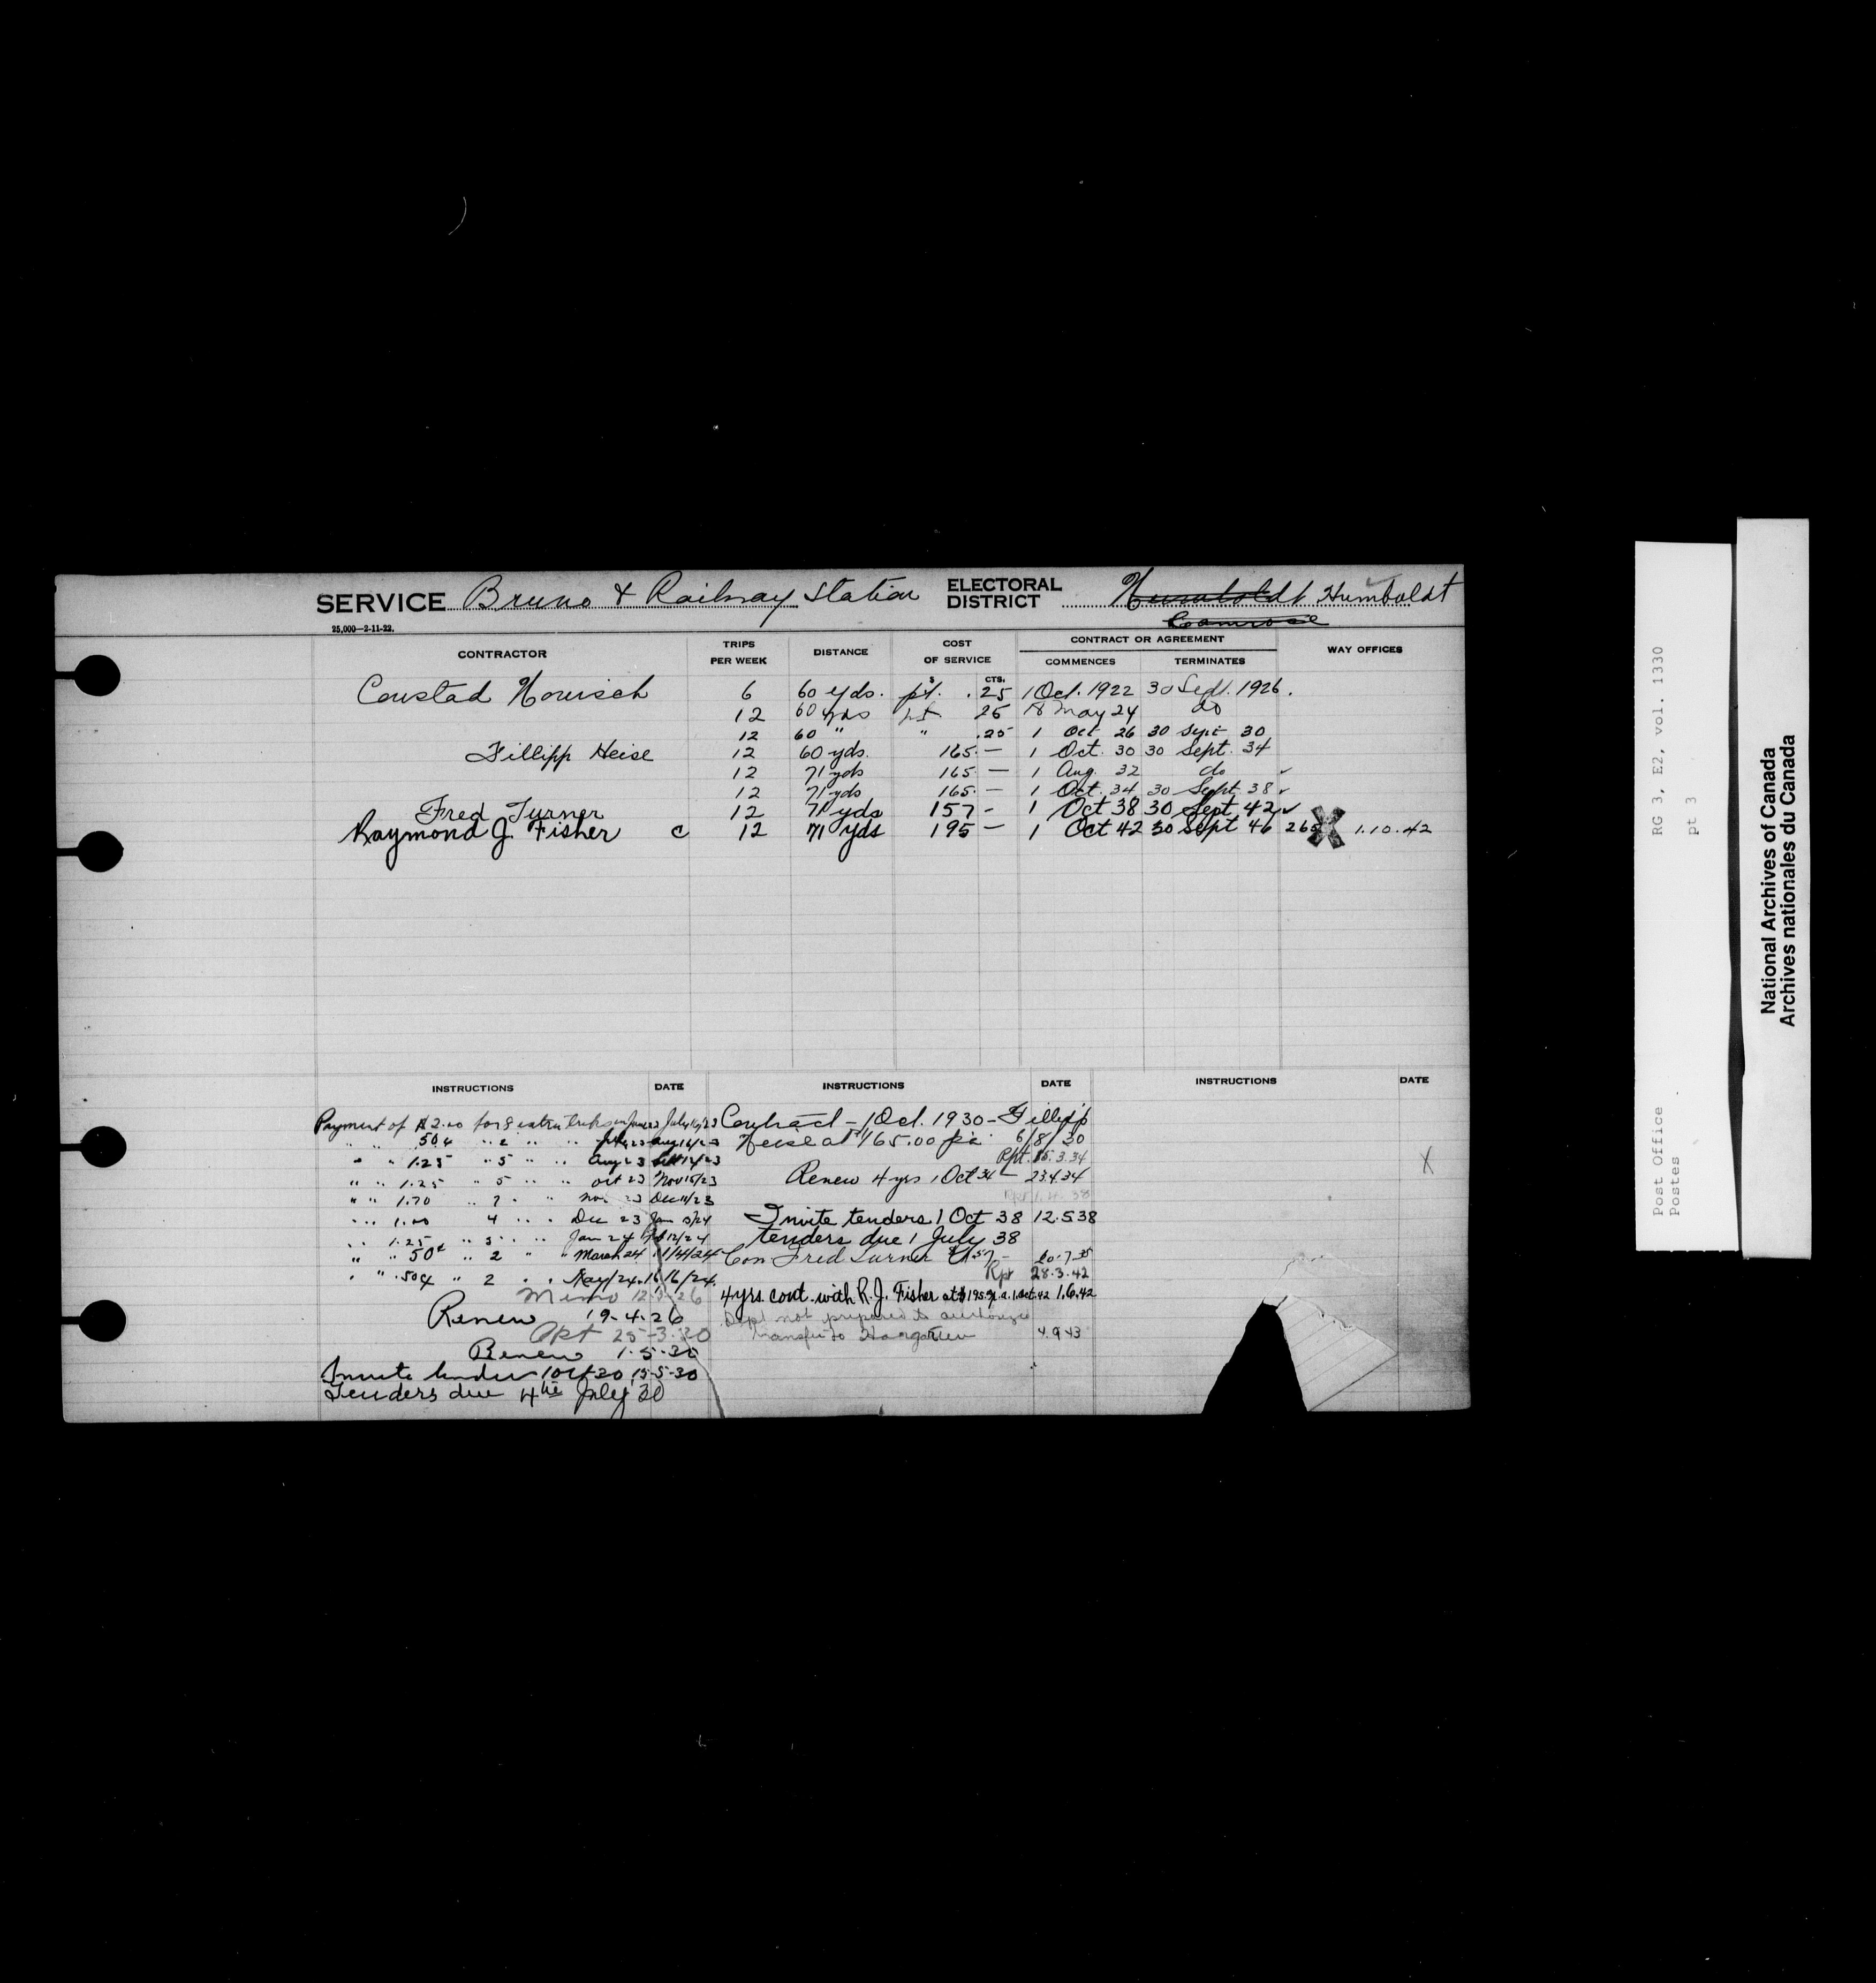 SERVICE Bruno & Railway Station ELECTORAL DISTRICT Humboldt Humboldt
Camrose
25,000—2-11-22.
CONTRACTOR TRIPS PER WEEK DISTANCE COST OF SERVICE CONTRACT OR AGREEMENT WAY OFFICES
COMMENCES TERMINATES
$ CTS.
6 60 yds. pt. .25 1 Oct. 1922 30 Sept. 1926.
12 60 yds pt 25 18 May 24 do
12 60 " " .25 1 Oct 26 30 Sept 30
Fillipp Heise 12 60 yds. 165.— 1 Oct. 30 30 Sept. 34
12 71 yds 165 — 1 Aug. 32 do ✓
12 71 yds 165.— 1 Oct. 34 30 Sept. 38 ✓
Fred Turner 12 71 yds 157 - 1 Oct 38 30 Sept 42 ✓
Raymond J. Fisher c 12 71 yds 195 — 1 Oct 42 30 Sept 46 265 X 1.10.42
INSTRUCTIONS DATE INSTRUCTIONS DATE INSTRUCTIONS DATE
Payment of $2.00 for 8 extra trips in June 23 July 16/23
" " 50¢ " 2 " " July 23 Aug 16/23
" " 1.25 " 5 " " Aug 23 Sept 12/23
" " 1.25 " 5 " " Oct 23 Nov 15/23
" " 1.70 " 7 " " Nov 23 Dec 11/23
" " 1.00 4 " " Dec 23 Jan /24
" " 1.25 " 5 " " Jan 24 Feb 12/24
" " 50¢ " 2 " " March 24 11/4/24
" " .50¢ " 2 " " May/24 16/6/24.
Memo 26
Renew 19-4-26
Rpt 25-3-30
Renew 1-5-30
Invite tenders 1 Oct 30 15-5-30
Tenders due 4th July 30
Contract - 1 Oct. 1930 - Fillipp
Heise at 165.00 p.a. 6/8/30
Rpt. 15.3.34
Renew 4 yrs 1 Oct 34 - 23.4.34
Invite tenders 1 Oct 38 12.5.38
tenders due 1 July 38
Con Fred Turner $157 -
Rpt 28.3.42
4 yrs. cont. with R. J. Fisher at $195 p.a. 1. Oct. 42 1.6.42
Dept not prepared to authorize
transfer to 4.9.43
X
RG 3, E2, vol. 1330
pt 3
Post Office
Postes
National Archives of Canada
Archives nationales du Canada